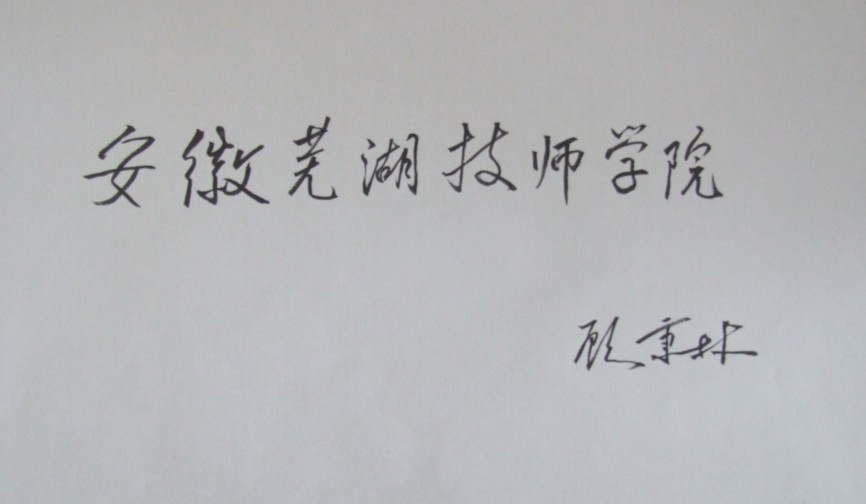 安徽芜湖技师学院
顾秉林